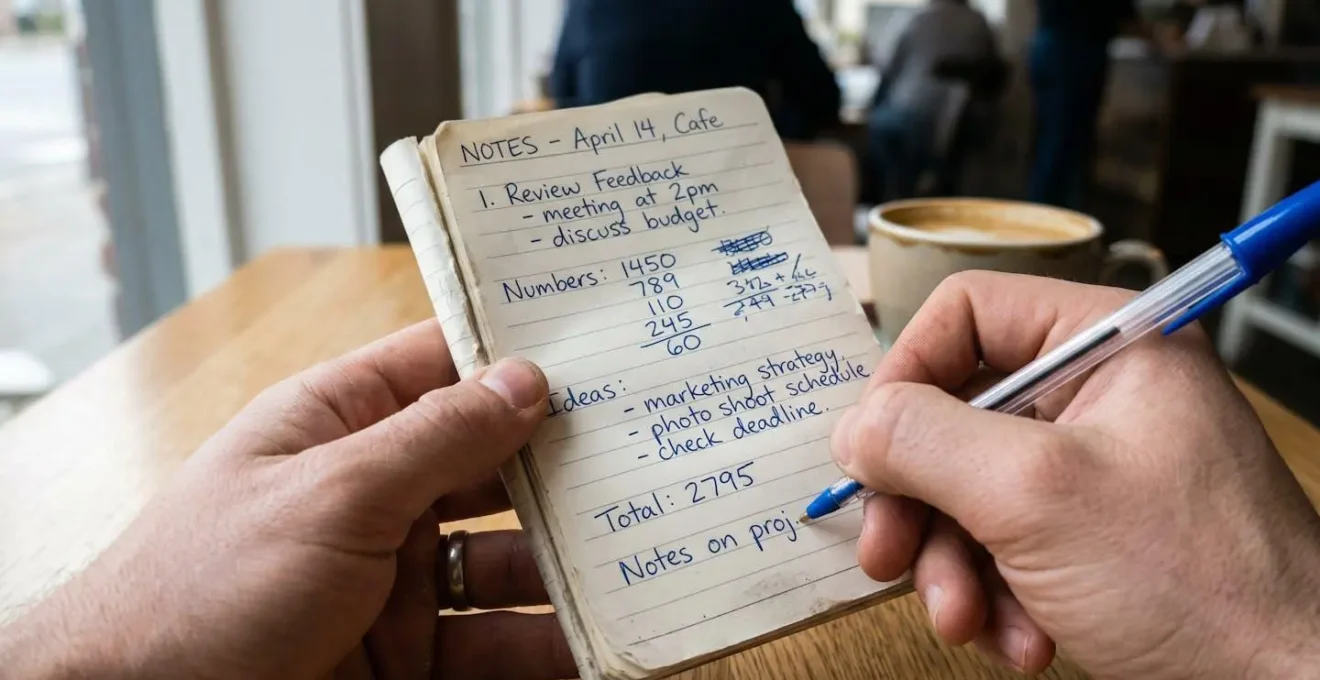 NOTES - April 14, Cafe
1. Review Feedback
- meeting at 2pm
- discuss budget.
Numbers: 1450
789
110
245
60
Ideas:
- marketing strategy,
- photo shoot schedule
- check deadline.
Total: 2795
Notes on proj.